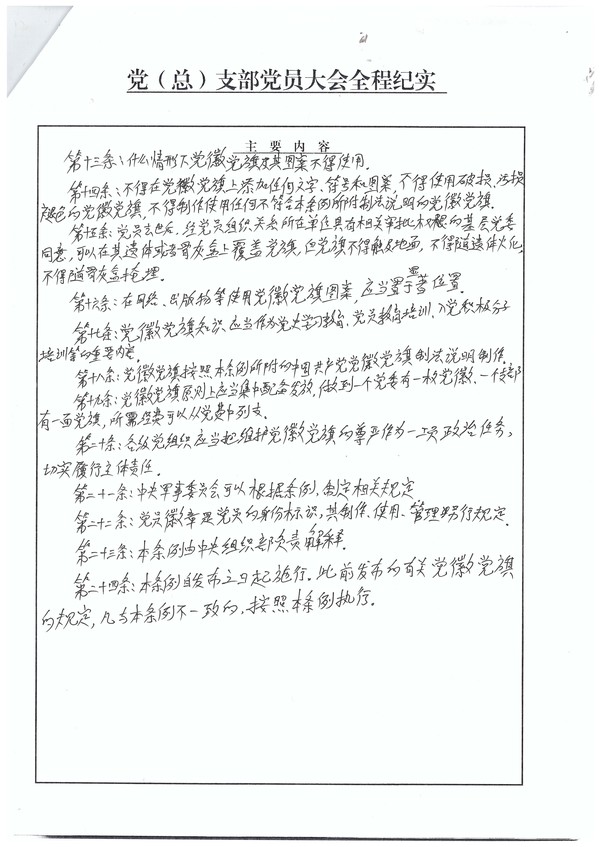 党（总）支部党员大会全程纪实
主 要 内 容
第十三条：什么情形下党徽党旗及其图案不得使用。
第十四条：不得在党徽党旗上添加任何文字、符号和图案，不得使用破损、污损
褪色的党徽党旗，不得制作使用任何不符合本条例所附制法说明的党徽党旗。
第十五条：党员去世后，经党员组织关系所在单位具有相关审批权限的基层党委
同意，可以在其遗体或者骨灰盒上覆盖党旗，但党旗不得触及地面，不得随遗体火化，
不得随骨灰盒掩埋。
第十六条：在网络、出版物等使用党徽党旗图案，应当置于显著位置。
第十七条：党徽党旗知识，应当作为党史学习教育、党员教育培训、入党积极分子
培训等的重要内容。
第十八条：党徽党旗按照本条例所附的中国共产党党徽党旗制法说明制作。
第十九条：党徽党旗原则上应当集中配备发放，做到一个党委有一枚党徽、一个支部
有一面党旗，所需经费可以从党费中列支。
第二十条：各级党组织应当把维护党徽党旗的尊严作为一项政治任务，
切实履行主体责任。
第二十一条：中央军事委员会可以根据条例，制定相关规定
第二十二条：党员徽章是党员的身份标识，其制作、使用、管理另行规定。
第二十三条：本条例由中央组织部负责解释。
第二十四条：本条例自发布之日起施行。此前发布的有关党徽党旗
的规定，凡与本条例不一致的，按照本条例执行。